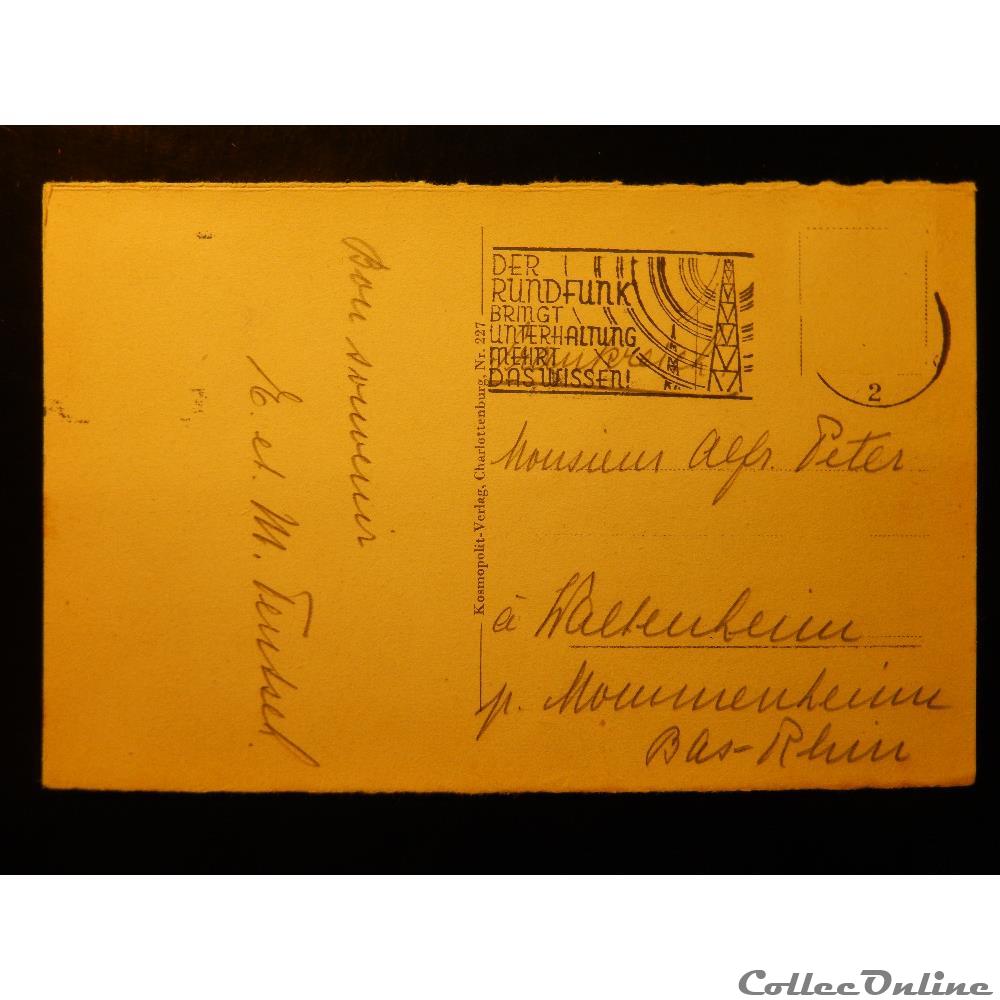 Bon souvenir
E. et M. Tenssel
Kosmopolit-Verlag, Charlottenburg, Nr. 227
DER
RUNDFUNK
BRINGT
UNTERHALTUNG
MEHRT
DAS WISSEN!
2
Monsieur Alfr. Peter
à Waltenheim
p. Mommenheim
Bas-Rhin
CollecOnline